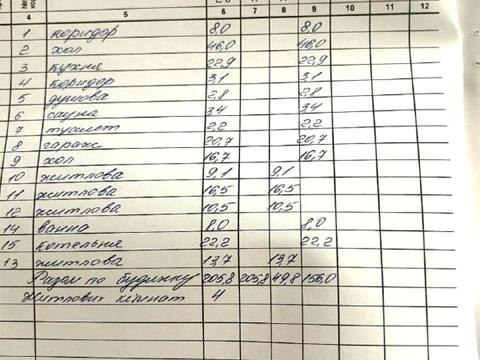 4 5 6 7 8 9 10 11 12
1 коридор 8,0 8,0
2 хол 46,0 46,0
3 кухня 22,9 22,9
4 коридор 3,1 3,1
5 душова 2,8 2,8
6 сауна 3,4 3,4
7 туалет 2,2 2,2
8 гараж 20,7 20,7
9 хол 16,7 16,7
10 житлова 9,1 9,1
11 житлова 16,5 16,5
12 житлова 10,5 10,5
14 ванна 8,0 8,0
15 котельня 22,2 22,2
13 житлова 13,7 13,7
Разом по будинку 205,8 205,8 49,8 156,0
Житлових кімнат 4